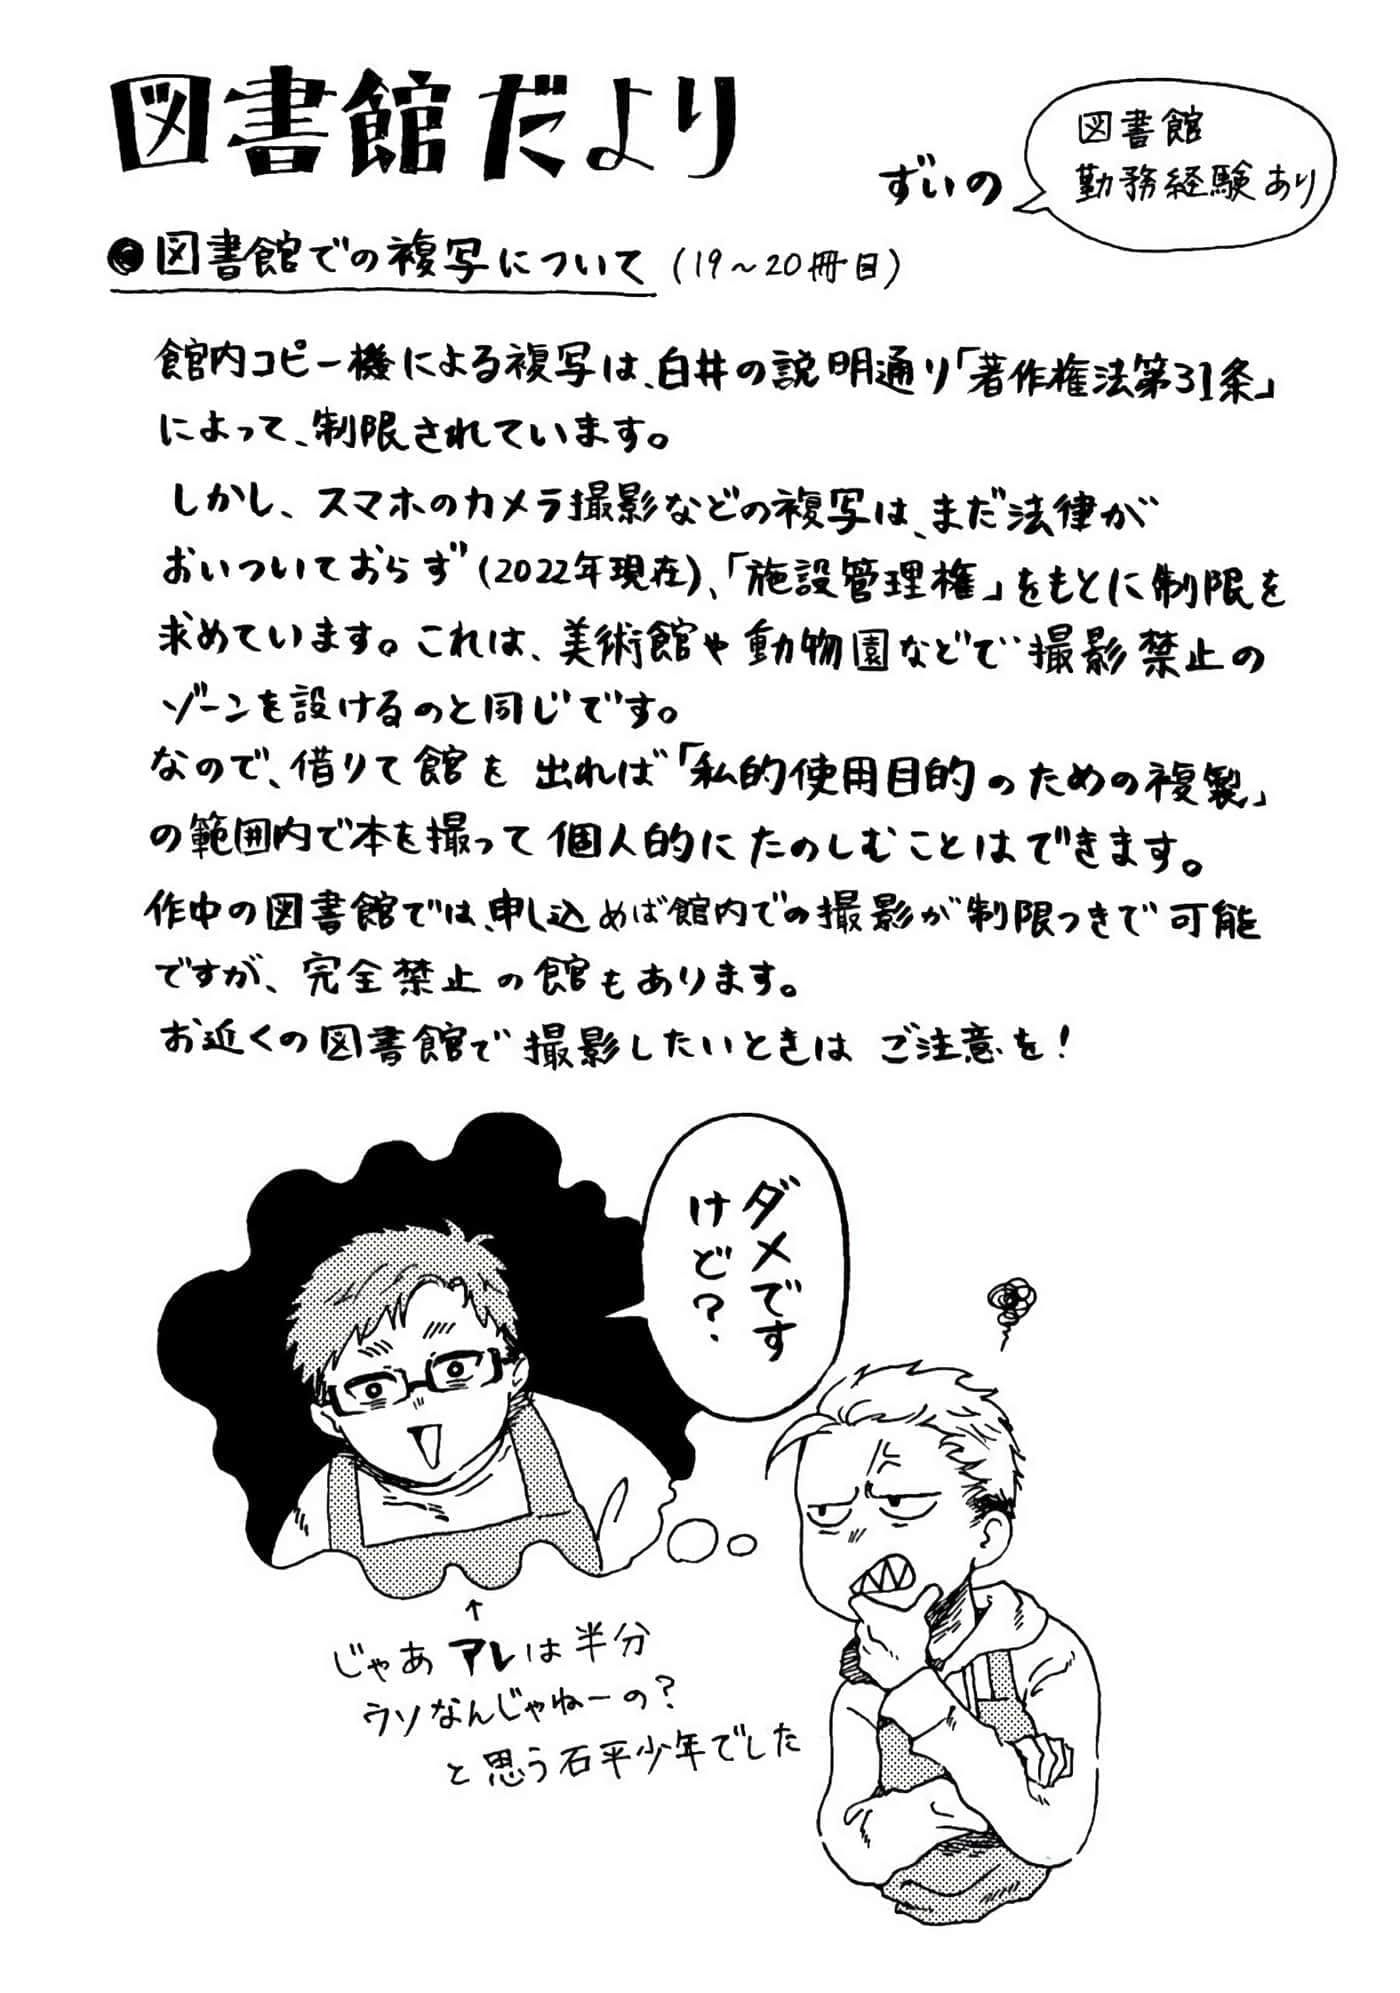 図書館だより
ずいの
図書館
勤務経験あり
●図書館での複写について(19〜20冊目)
館内コピー機による複写は、白井の説明通り「著作権法第31条」
によって、制限されています。
しかし、スマホのカメラ撮影などの複写は、まだ法律が
おいついておらず(2022年現在)、「施設管理権」をもとに制限を
求めています。これは、美術館や動物園などで撮影禁止の
ゾーンを設けるのと同じです。
なので、借りて館を出れば「私的使用目的のための複製」
の範囲内で本を撮って個人的にたのしむことはできます。
作中の図書館では、申し込めば館内での撮影が制限つきで可能
ですが、完全禁止の館もあります。
お近くの図書館で撮影したいときはご注意を!
ダメです
けど?
↑
じゃあアレは半分
ウソなんじゃねーの?
と思う石平少年でした